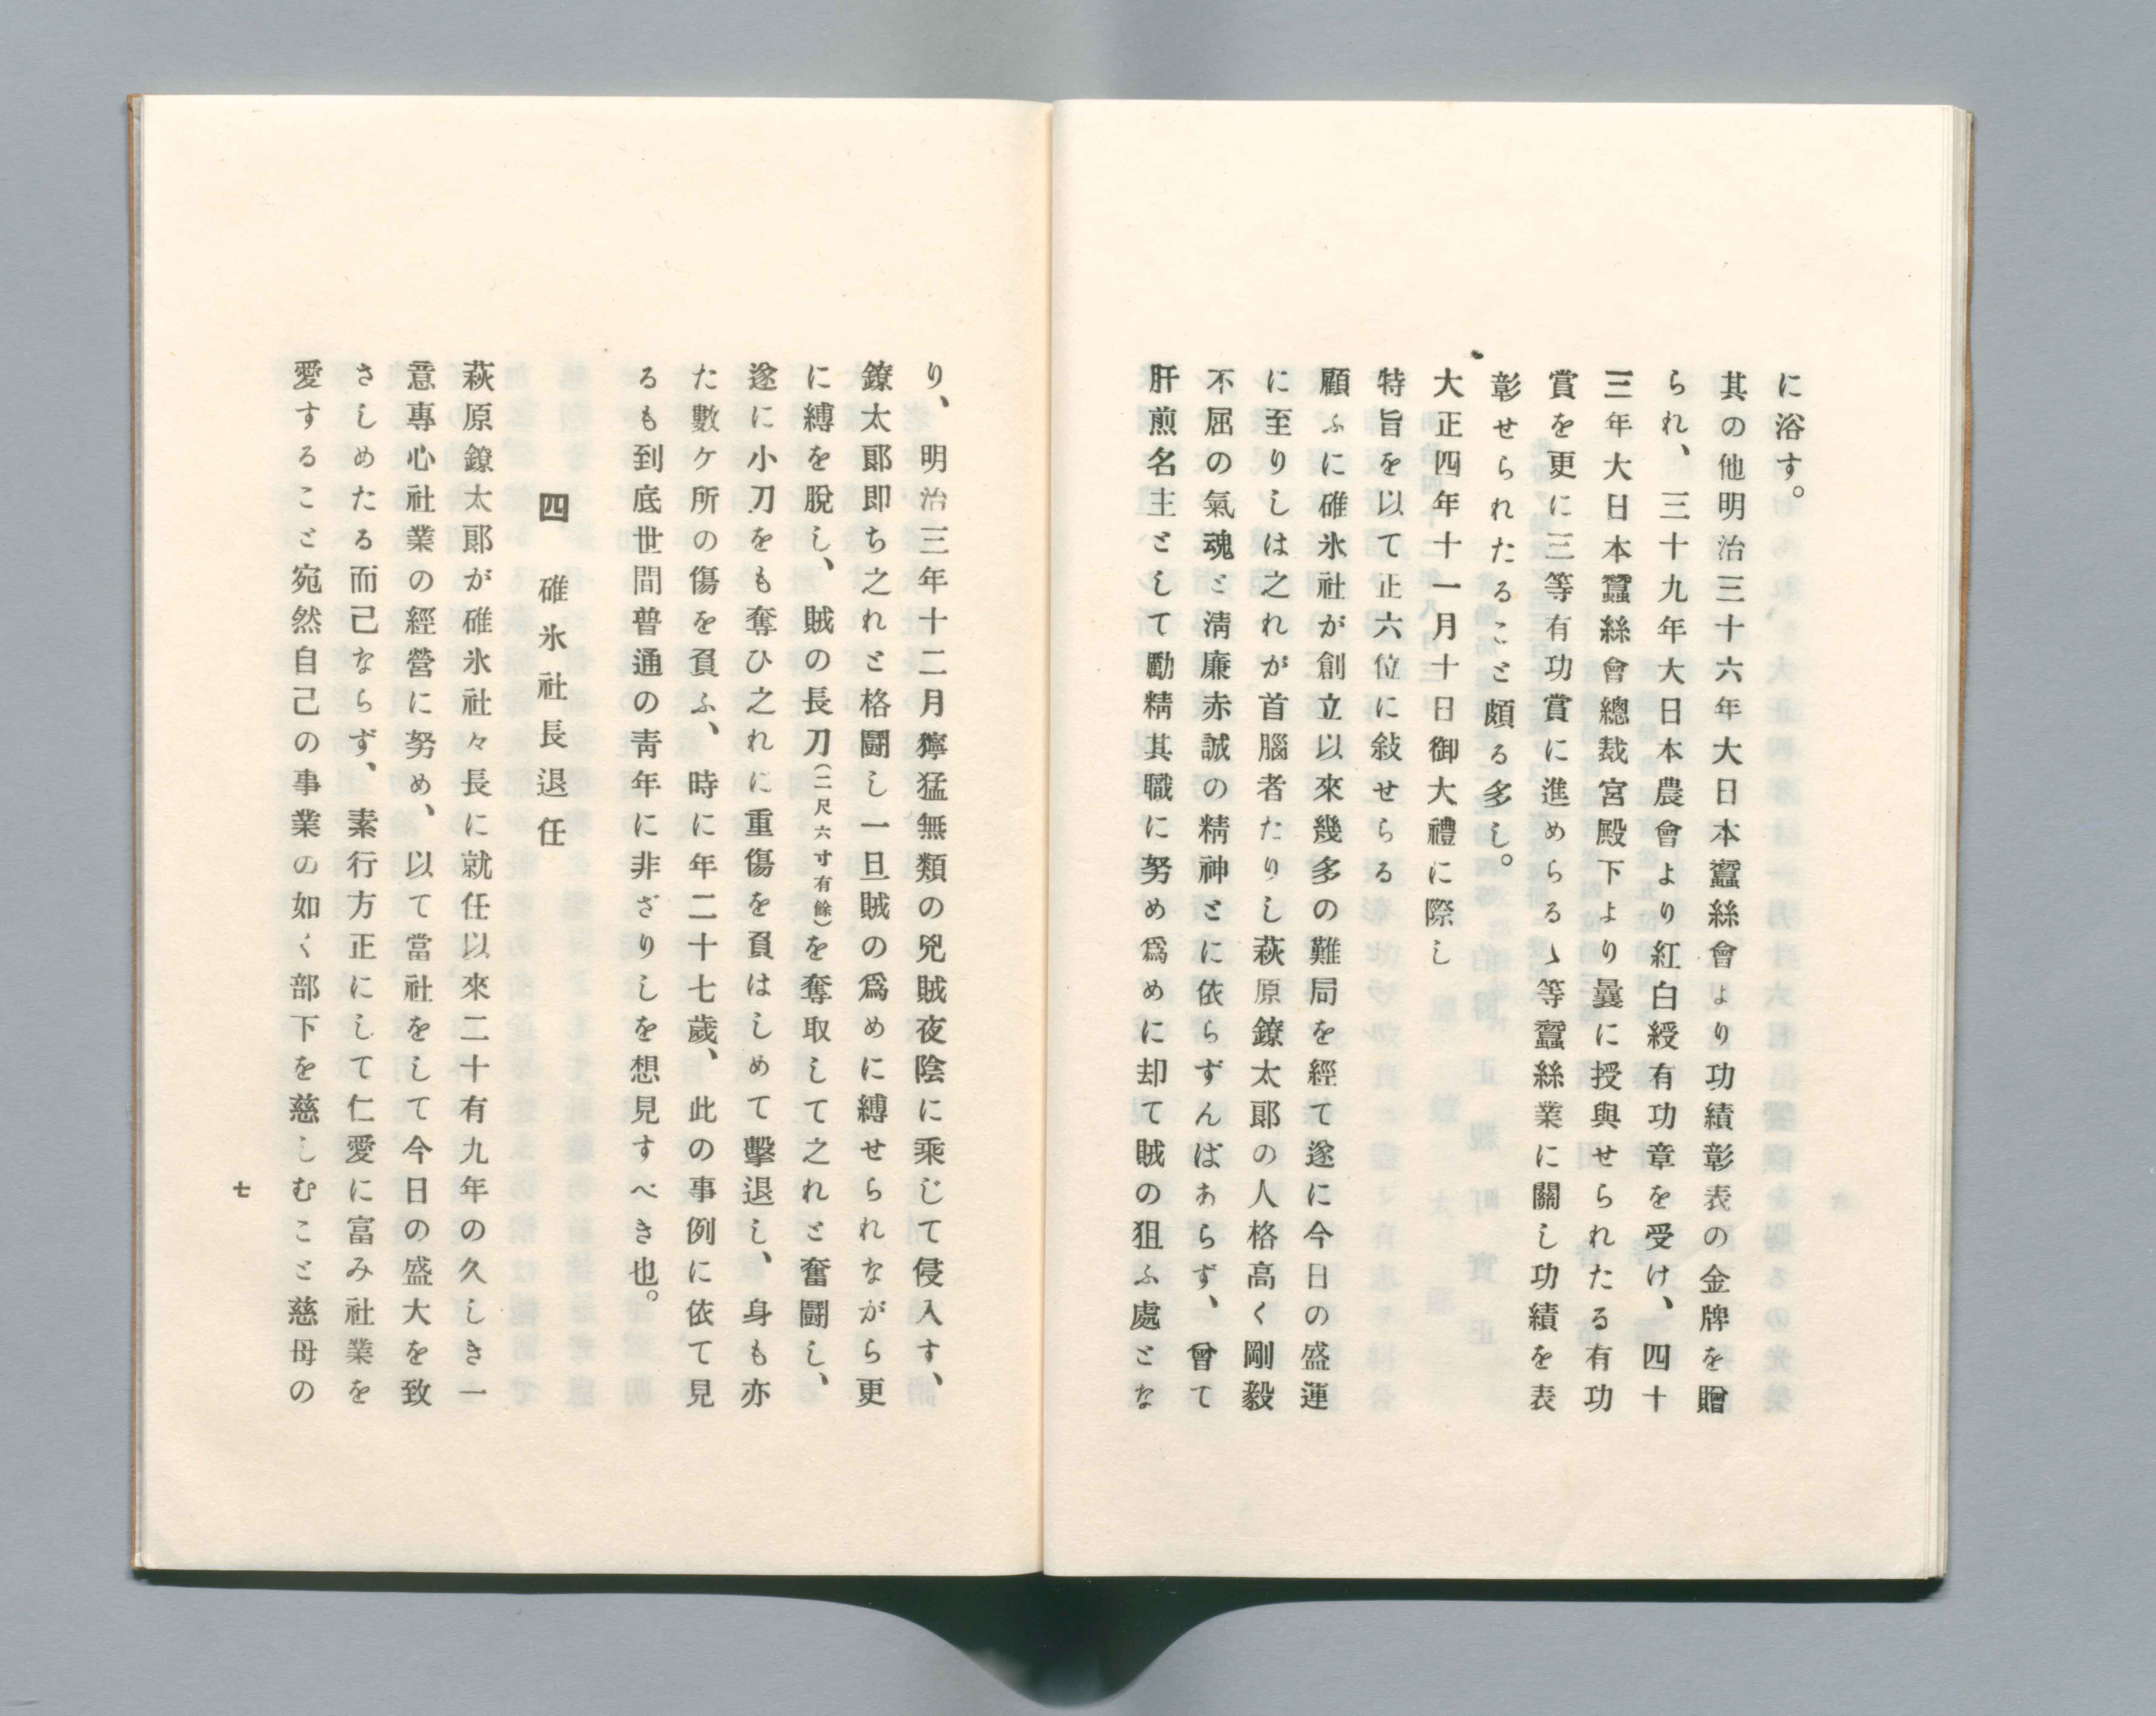 に浴す。
其の他明治三十六年大日本蠶絲會より功績彰表の金牌を贈
られ、三十九年大日本農會より紅白綬有功章を受け、四十
三年大日本蠶絲會總裁宮殿下より曩に授與せられたる有功
賞を更に三等有功賞に進めらるゝ等蠶絲業に關し功績を表
彰せられたること頗る多し。
大正四年十一月十日御大禮に際し
特旨を以て正六位に敍せらる
顧ふに碓氷社が創立以來幾多の難局を經て遂に今日の盛運
に至りしは之れが首腦者たりし萩原鐐太郎の人格高く剛毅
不屈の氣魂と淸廉赤誠の精神とに依らずんばあらず、曾て
肝煎名主として勵精其職に努め爲めに却て賊の狙ふ處とな
り、明治三年十二月獰猛無類の兇賊夜陰に乘じて侵入す、
鐐太郎即ち之れと格鬪し一旦賊の爲めに縛せられながら更
に縛を脫し、賊の長刀(二尺六寸有餘)を奪取して之れと奮鬪し、
遂に小刀をも奪ひ之れに重傷を負はしめて擊退し、身も亦
た數ケ所の傷を負ふ、時に年二十七歲、此の事例に依て見
るも到底世間普通の靑年に非ざりしを想見すべき也。
四　碓氷社長退任
萩原鐐太郎が碓氷社々長に就任以來二十有九年の久しき一
意專心社業の經營に努め、以て當社をして今日の盛大を致
さしめたる而已ならず、素行方正にして仁愛に富み社業を
愛すること宛然自己の事業の如く部下を慈しむこと慈母の
七